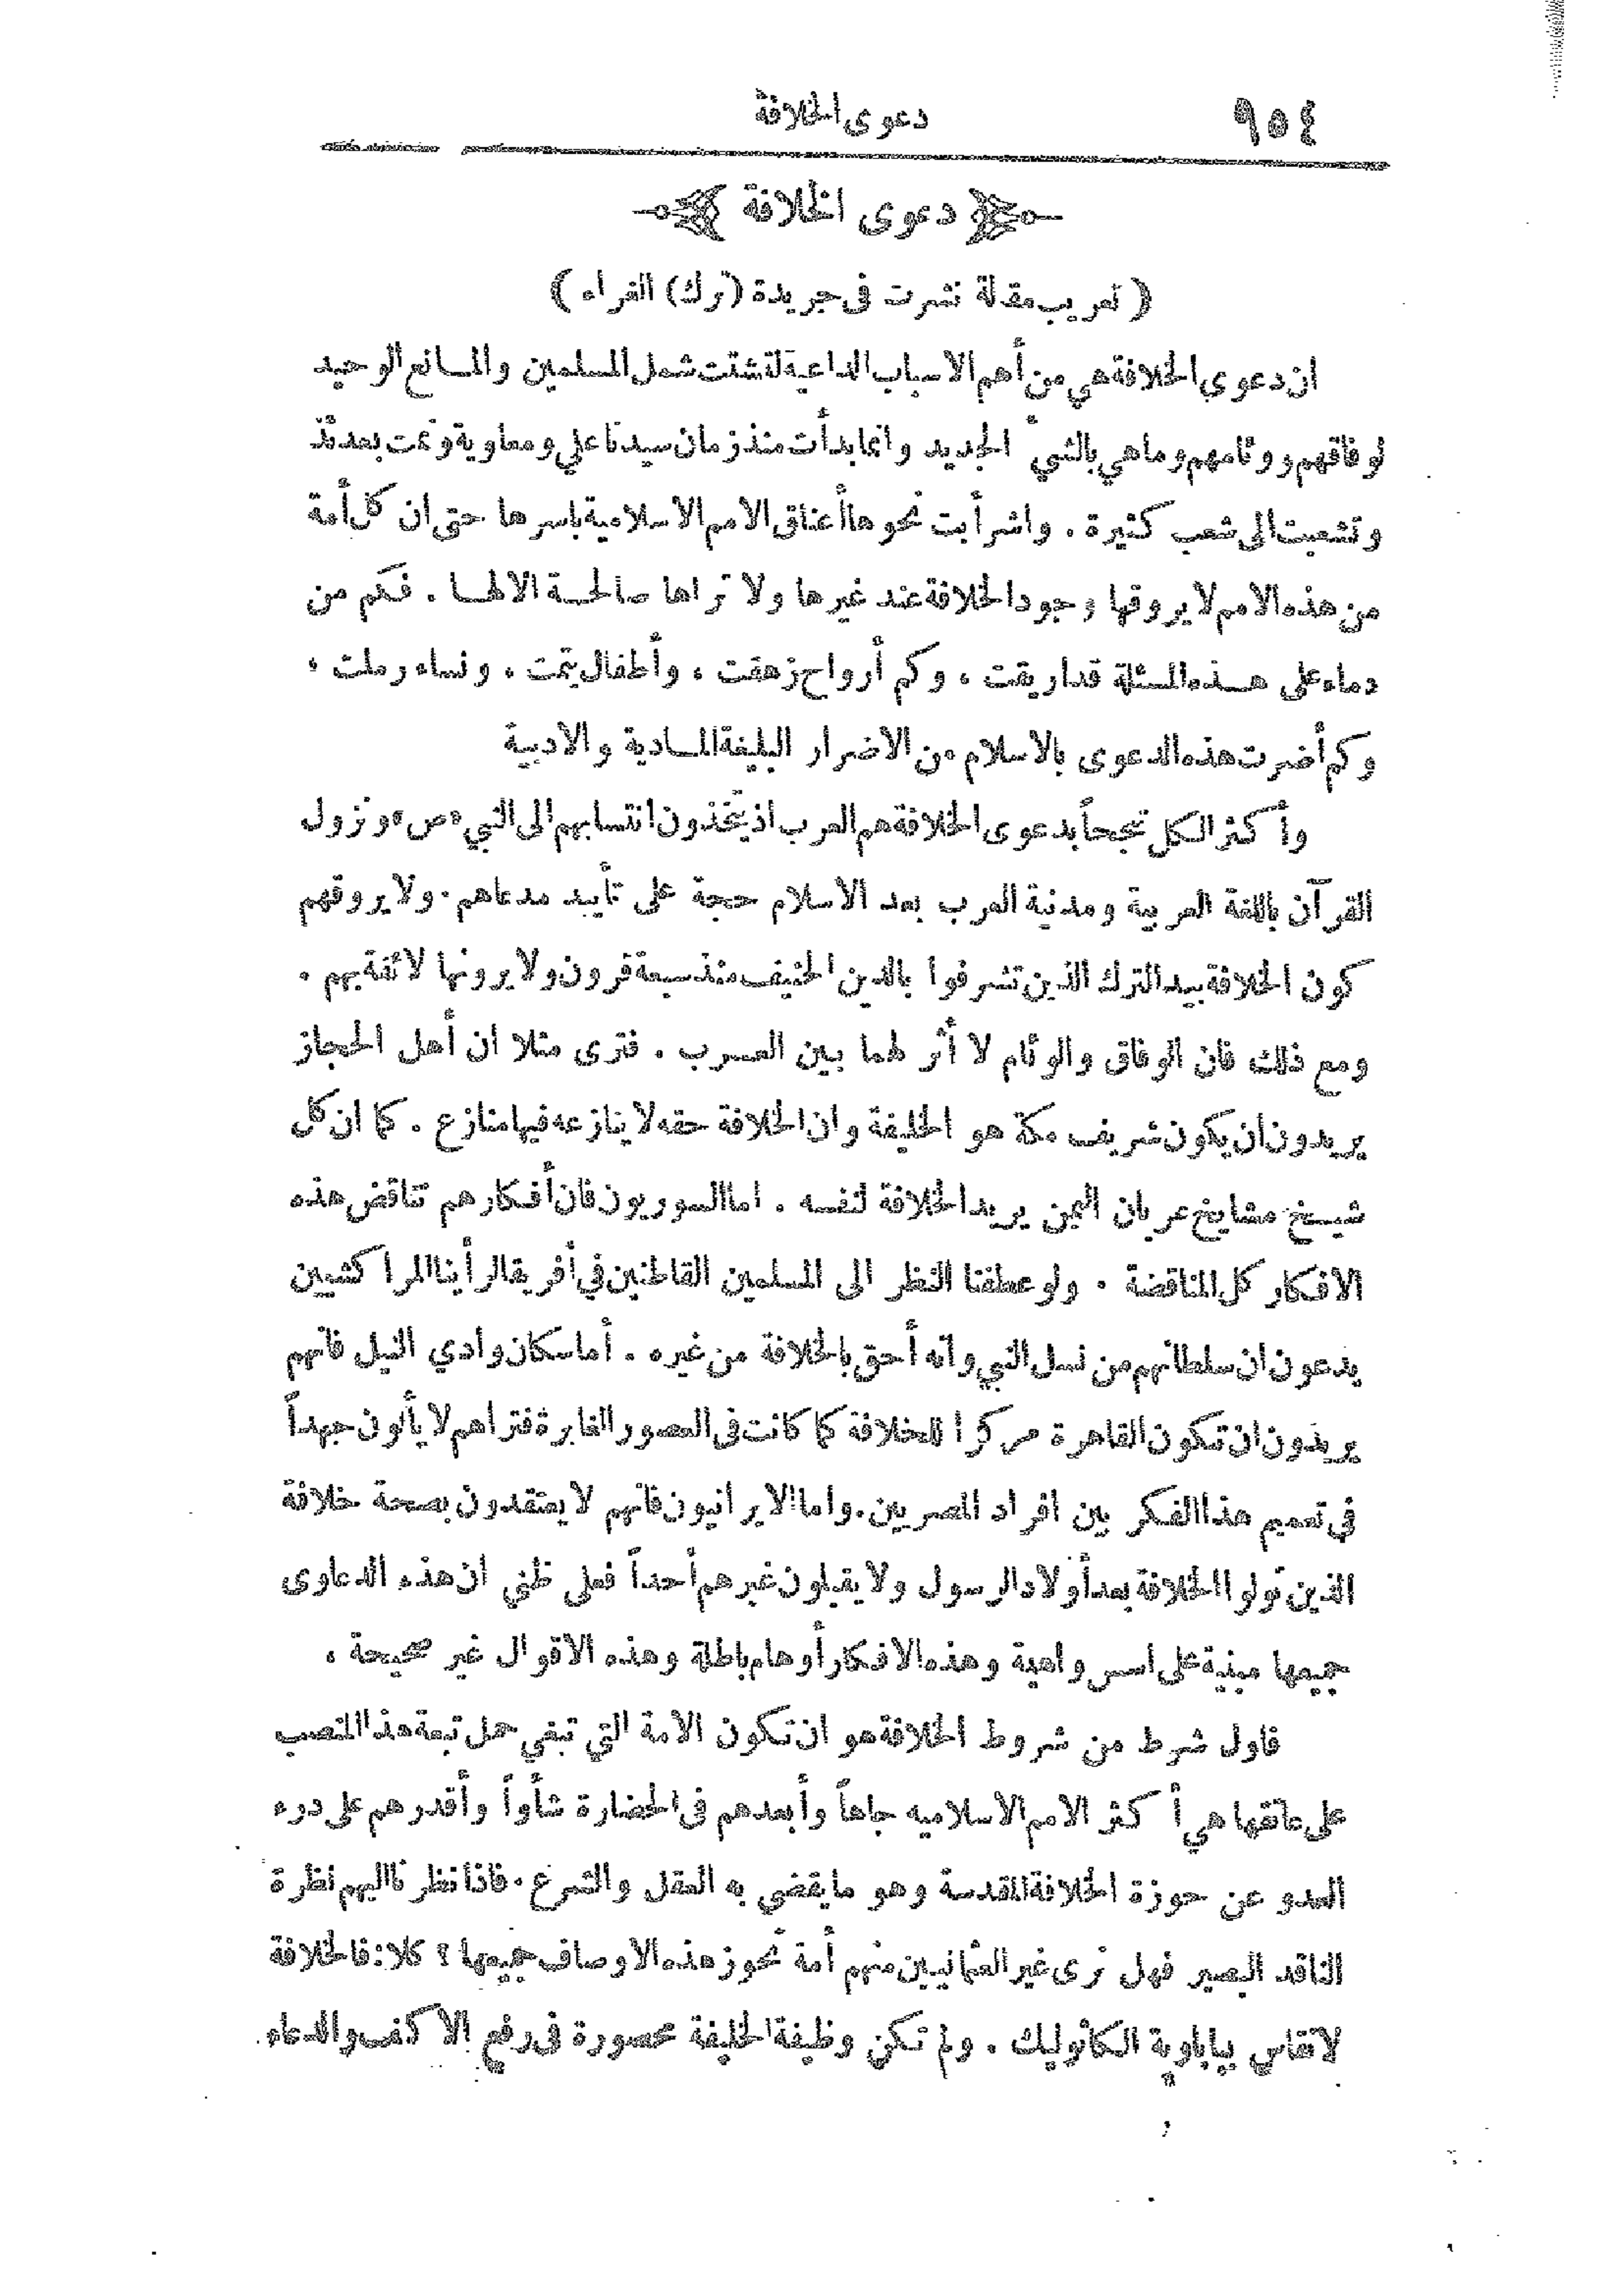 ٩٥٤
دعوى الخلافة
دعوى الخلافة
( تعريب مقالة نشرت في جريدة (ترك) الغراء )
ان دعوى الخلافة هي من أهم الاسباب الداعية لتشتت شمل المسلمين والمـانع الوحيد
لوفاقهم ووئامهم وما هي بالشيء الجديد وانما بدأت منذ زمان سيدنا علي ومعاوية ونمت بعدئذ
وتشعبت الى شعب كثيرة . واشرأبت نحوها أعناق الامم الاسلامية باسرها حتى ان كل أمة
من هذه الامم لا يروقها وجود الخلافة عند غيرها ولا تراها صالحـة الا لهـا . فكم من
دماء على هـذه المسئلة قد اريقت ، وكم أرواح زهقت ، وأطفال يتمت ، ونساء رملت ،
وكم أضرت هذه الدعوى بالاسلام من الاضرار البليغة المـادية والادبية
وأكثر الكل تبجحاً بدعوى الخلافة هم العرب اذ يتخذون انتسابهم الى النبي «ص» ونزول
القرآن باللغة العربية ومدنية العرب بعد الاسلام حجة على تأييد مدعاهم . ولا يروقهم
كون الخلافة بيد الترك الذين تشرفوا بالدين الحنيف منذ سبعة قرون ولا يرونها لائقة بهم .
ومع ذلك فان الوفاق والوئام لا أثر لهما بين العـرب . فترى مثلا ان أهل الحجاز
يريدون ان يكون شريف مكة هو الخليفة وان الخلافة حقه لا ينازعه فيها منازع . كما ان كل
شيـخ مشايخ عربان اليمن يريد الخلافة لنفسه . اما السوريون فان أفكارهم تناقض هذه
الافكار كل المناقضة . ولو عطفنا النظر الى المسلمين القاطنين في أفريقا لرأينا المراكشيين
يدعون ان سلطانهم من نسل النبي وانه أحق بالخلافة من غيره . أما سكان وادي النيل فانهم
يريدون ان تكون القاهرة مركزا للخلافة كما كانت في العصور الغابرة فتراهم لا يألون جهداً
في تعميم هذا الفكر بين افراد المصريين . واما الايرانيون فانهم لا يعتقدون بصحة خلافة
الذين تولوا الخلافة بعد أولاد الرسول ولا يقبلون غيرهم أحداً فعلى ظني ان هذه الدعاوى
جميعها مبنية على اسس واهية وهذه الافكار أوهام باطلة وهذه الاقوال غير صحيحة ،
فاول شرط من شروط الخلافة هو ان تكون الامة التي تبغي حمل تبعة هذا المنصب
على عاتقها هي أكثر الامم الاسلاميه جاهاً وأبعدهم في الحضارة شأواً وأقدرهم على درء
العدو عن حوزة الخلافة المقدسة وهو ما يقضي به العقل والشرع . فاذا نظرنا اليهم نظرة
الناقد البصير فهل نرى غير العثمانيين منهم أمة تحوز هذه الاوصاف جميعها ؟ كلا : فالخلافة
لا تقاس بباباوية الكاثوليك . ولم تكن وظيفة الخليفة محصورة في رفع الاكف والدعاء